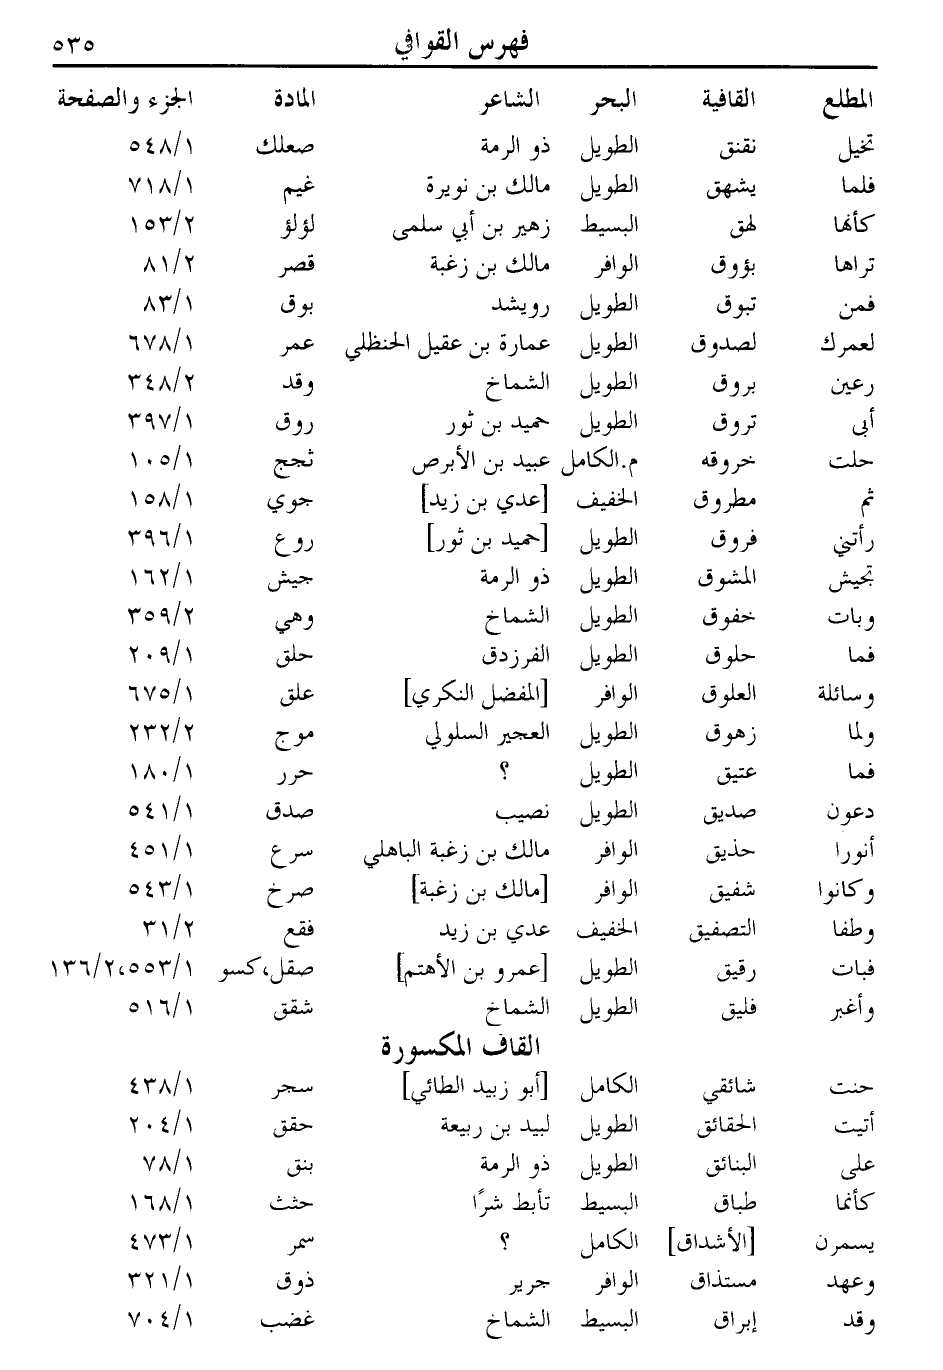 فهرس القوافي ٥٣٥
المطلع القافية البحر الشاعر المادة الجزء والصفحة
تخيل نقنق الطويل ذو الرمة صعلك ٥٤٨/١
فلما يشهق الطويل مالك بن نويرة غيم ٧١٨/١
كأنها لهق البسيط زهير بن أبي سلمى لؤلؤ ١٥٣/٢
تراها بؤوق الوافر مالك بن زغبة قصر ٨١/٢
فمن تبوق الطويل رويشد بوق ٨٣/١
لعمرك لصدوق الطويل عمارة بن عقيل الحنظلي عمر ٦٧٨/١
رعين بروق الطويل الشماخ وقد ٣٤٨/٢
أبى تروق الطويل حميد بن ثور روق ٣٩٧/١
حلت خروقه م.الكامل عبيد بن الأبرص ثجج ١٠٥/١
ثم مطروق الخفيف [عدي بن زيد] جوي ١٥٨/١
رأتني فروق الطويل [حميد بن ثور] روع ٣٩٦/١
تجيش المشوق الطويل ذو الرمة جيش ١٦٢/١
وبات خفوق الطويل الشماخ وهي ٣٥٩/٢
فما حلوق الطويل الفرزدق حلق ٢٠٩/١
وسائلة العلوق الوافر [المفضل النكري] علق ٦٧٥/١
ولما زهوق الطويل العجير السلولي موج ٢٣٢/٢
فما عتيق الطويل ؟ حرر ١٨٠/١
دعون صديق الطويل نصيب صدق ٥٤١/١
أنورا حذيق الوافر مالك بن زغبة الباهلي سرع ٤٥١/١
وكانوا شفيق الوافر [مالك بن زغبة] صرخ ٥٤٣/١
وطفا التصفيق الخفيف عدي بن زيد فقع ٣١/٢
فبات رقيق الطويل [عمرو بن الأهتم] صقل،كسو ٥٥٣/١،١٣٦/٢
وأغبر فليق الطويل الشماخ شقق ٥١٦/١
القاف المكسورة
حنت شائقي الكامل [أبو زبيد الطائي] سجر ٤٣٨/١
أتيت الحقائق الطويل لبيد بن ربيعة حقق ٢٠٤/١
على البنائق الطويل ذو الرمة بنق ٧٨/١
كأنما طباق البسيط تأبط شرًا حثث ١٦٨/١
يسمرن [الأشداق] الكامل ؟ سمر ٤٧٣/١
وعهد مستذاق الوافر جرير ذوق ٣٢١/١
وقد إبراق البسيط الشماخ غضب ٧٠٤/١